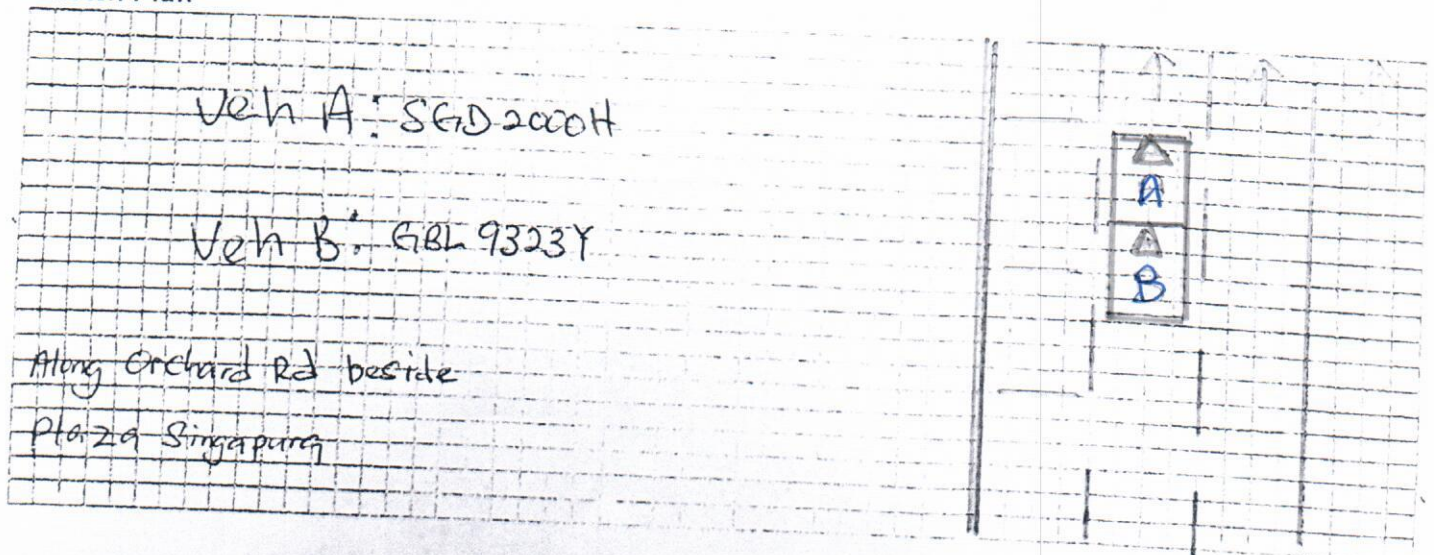 Veh A: SGD2000H
Veh B: GBL 9323Y
Along Orchard Rd beside
Plaza Singapura
A
B